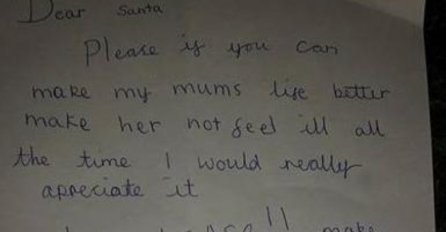 Dear Santa
Please if you can
make my mums life better
make her not feel ill all
the time I would really
apreciate it
make